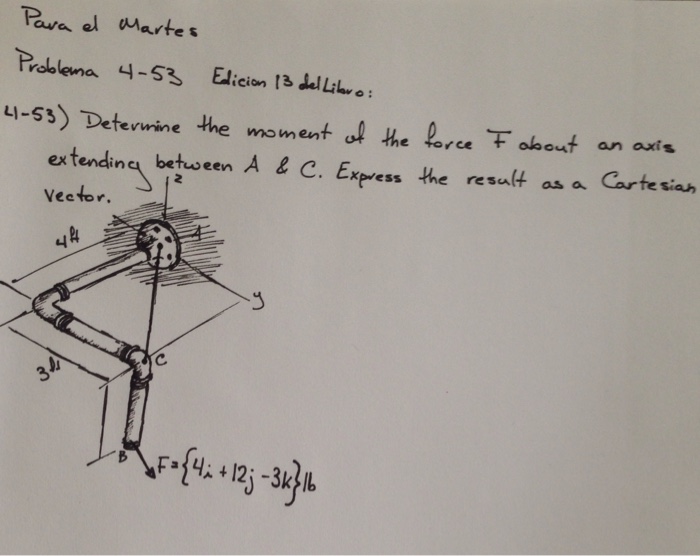 Para el Martes
Problema 4-53 Edicion 13 del Libro:
4-53) Determine the moment of the force F about an axis
extending between A & C. Express the result as a Cartesian
vector.
z
4 ft
A
y
C
3 ft
B
F = {4i + 12j - 3k} lb